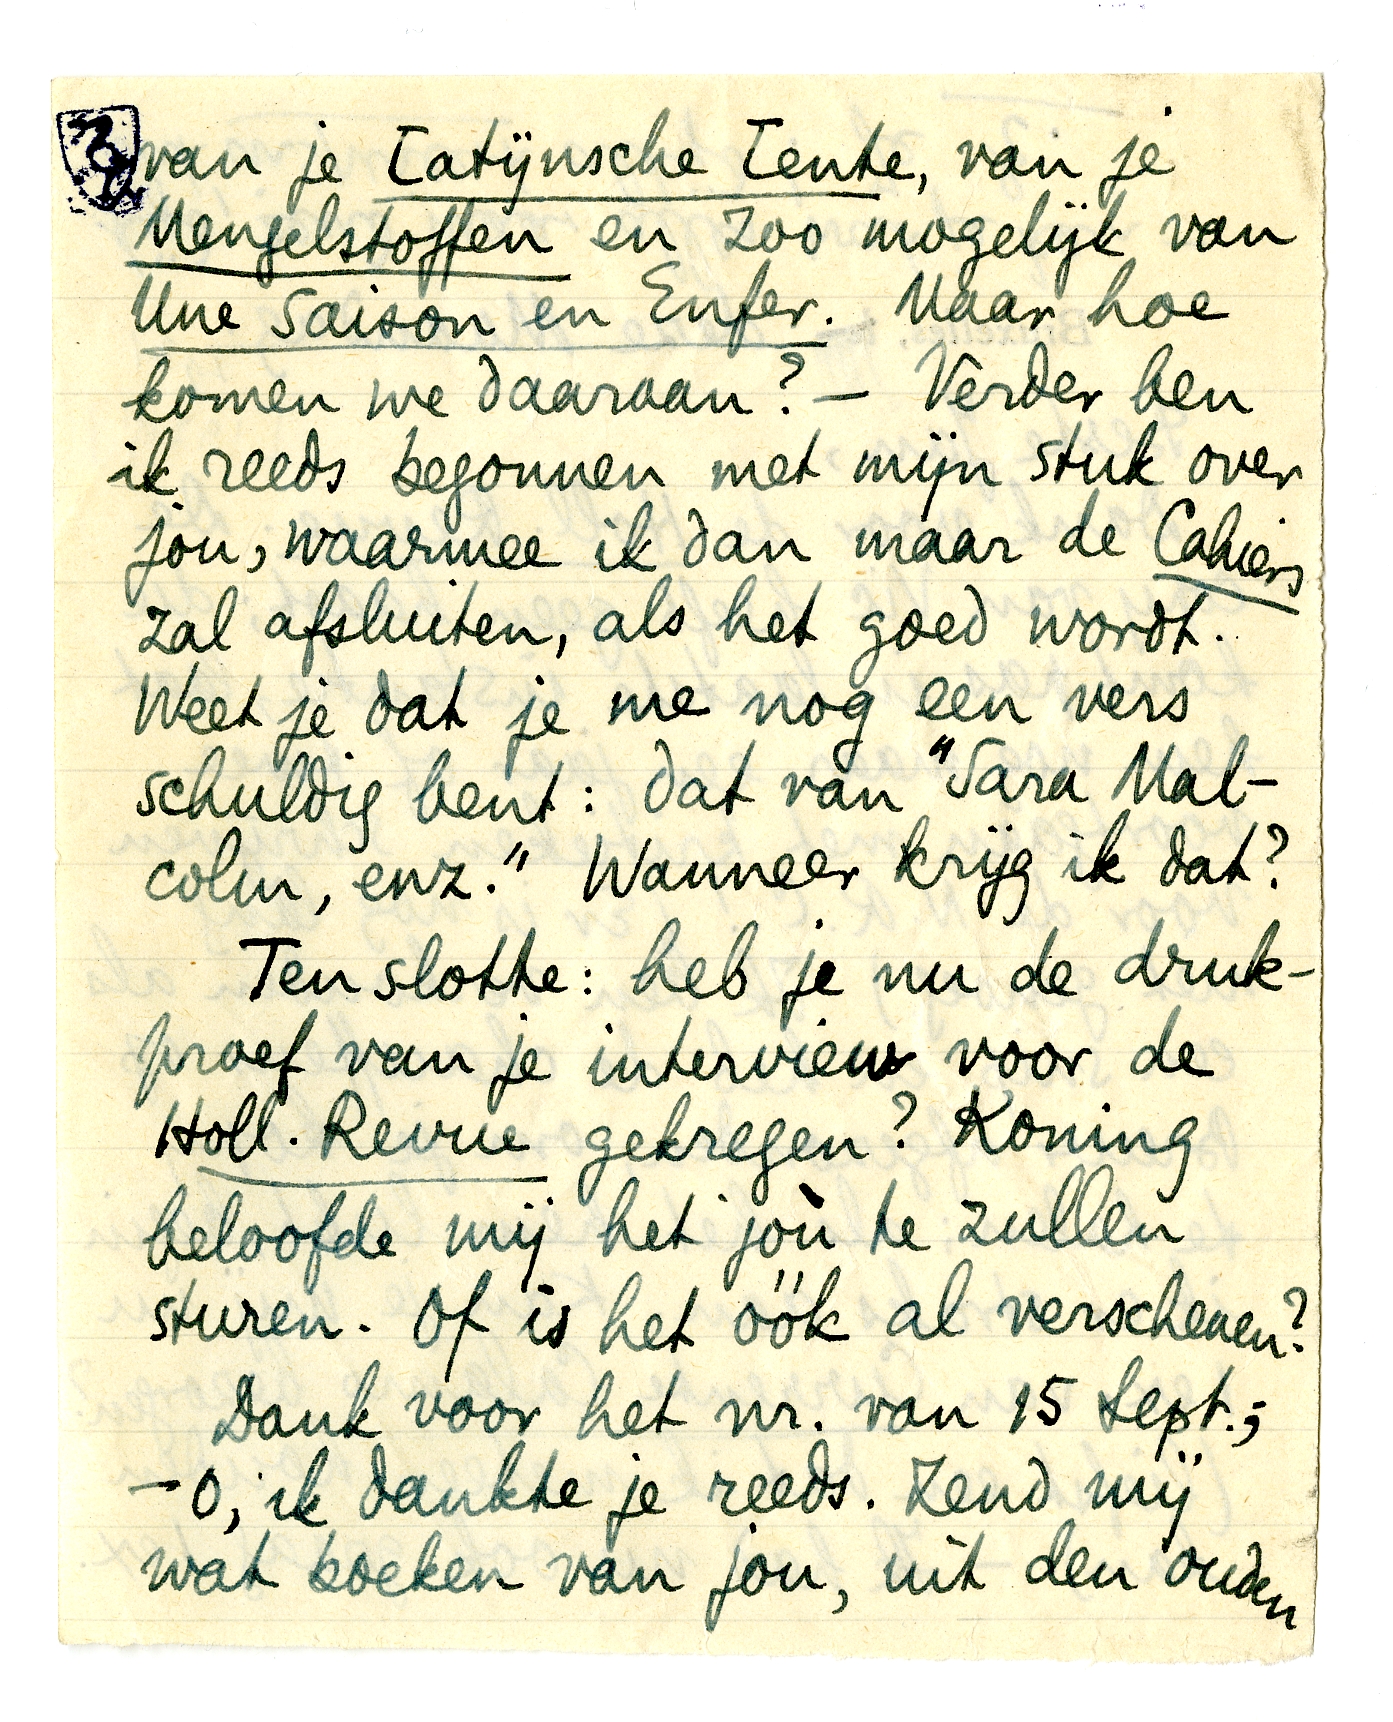 van je Latijnsche Lente, van je
Mengelstoffen en zoo mogelijk van
Une Saison en Enfer. Maar hoe
komen we daaraan? – Verder ben
ik reeds begonnen met mijn stuk over
jou, waarmee ik dan maar de Cahiers
zal afsluiten, als het goed wordt.
Weet je dat je me nog een vers
schuldig bent: dat van "Sara Mal-
colm, enz." Wanneer krijg ik dat?
Ten slotte: heb je nu de druk-
proef van je interview voor de
Holl. Revue gekregen? Koning
beloofde mij het jòu te zullen
sturen. Of is het óók al verschenen?
Dank voor het nr. van 15 Sept.;
– O, ik dankte je reeds. Zend mij
wat boeken van jou, uit den ouden